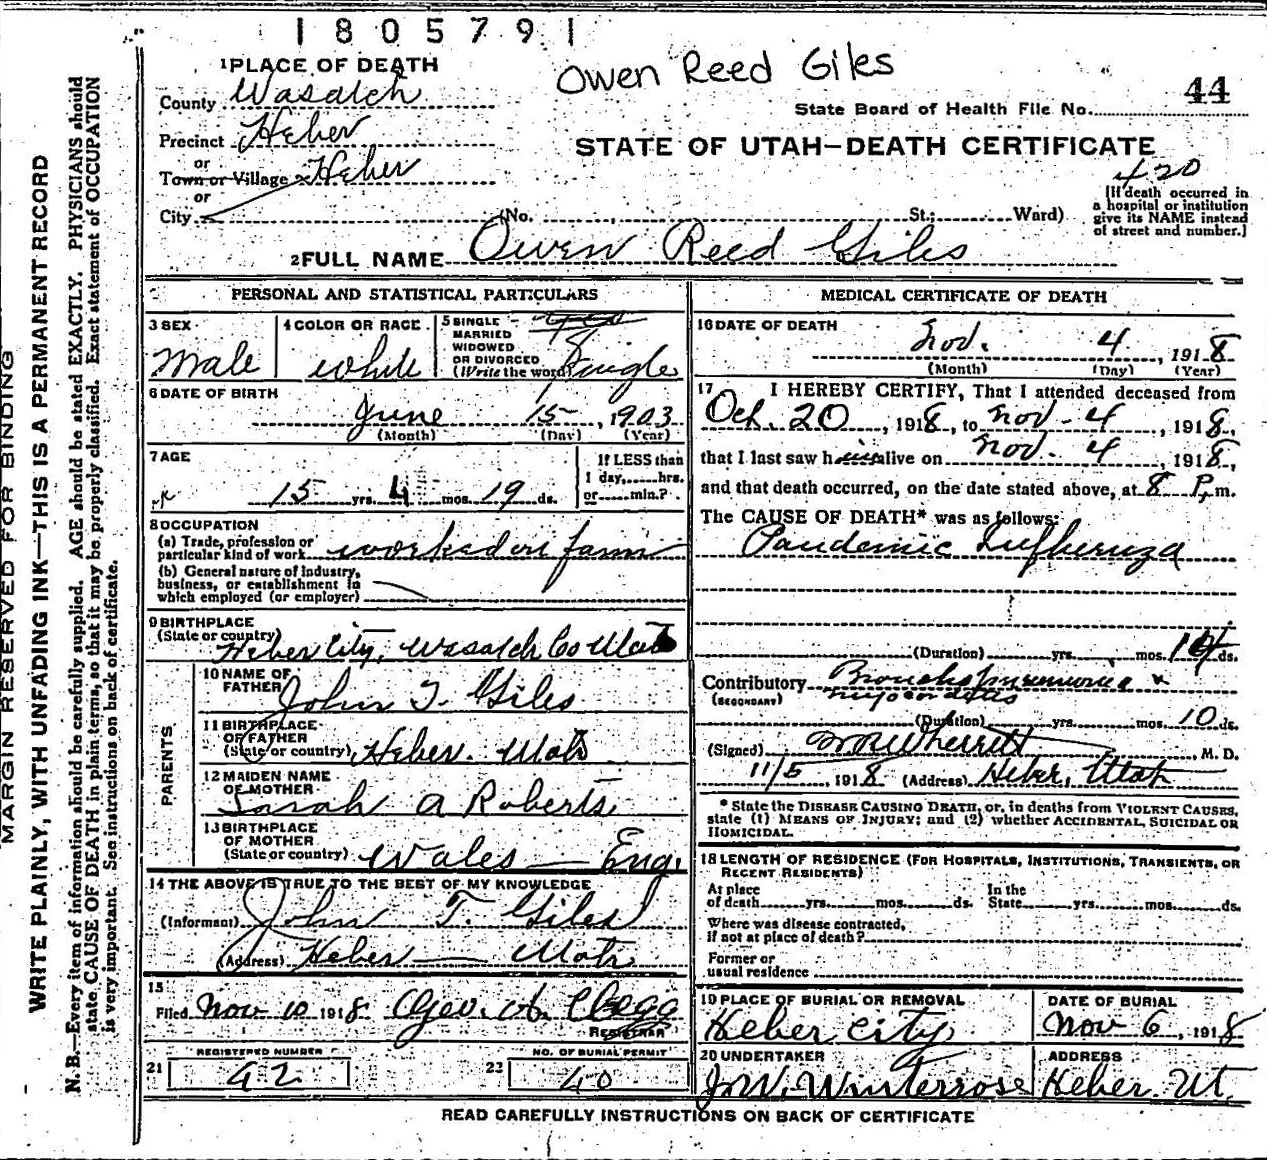 1805791
Owen Reed Giles
44
State Board of Health File No.
STATE OF UTAH—DEATH CERTIFICATE
420
[If death occurred in
a hospital or institution
give its NAME instead
of street and number.]
1 PLACE OF DEATH
County Wasatch
Precinct Heber
or
Town or Village Heber
or
City (No. , St.; Ward)
2 FULL NAME Owen Reed Giles
PERSONAL AND STATISTICAL PARTICULARS
3 SEX
Male
4 COLOR OR RACE
White
5 SINGLE
MARRIED
WIDOWED
OR DIVORCED
(Write the word) Single
6 DATE OF BIRTH
June 15, 1903
(Month) (Day) (Year)
7 AGE
15 yrs. 4 mos. 19 ds.
If LESS than
1 day, hrs.
or min.?
8 OCCUPATION
(a) Trade, profession or
particular kind of work worked on farm
(b) General nature of industry,
business, or establishment in
which employed (or employer)
9 BIRTHPLACE
(State or country)
Heber City, Wasatch Co Utah
PARENTS
10 NAME OF
FATHER John T. Giles
11 BIRTHPLACE
OF FATHER
(State or country) Heber. Utah
12 MAIDEN NAME
OF MOTHER
Sarah A Roberts
13 BIRTHPLACE
OF MOTHER
(State or country) Wales — Eng.
14 THE ABOVE IS TRUE TO THE BEST OF MY KNOWLEDGE
(Informant) John T. Giles
(Address) Heber — Utah
15
Filed Nov 10 1918 Geo. A. Clegg
REGISTRAR
21 REGISTERED NUMBER
42
22 NO. OF BURIAL PERMIT
40
MEDICAL CERTIFICATE OF DEATH
16 DATE OF DEATH
Nov. 4, 1918
(Month) (Day) (Year)
17 I HEREBY CERTIFY, That I attended deceased from
Oct. 20, 1918, to Nov - 4, 1918,
that I last saw him alive on Nov. 4, 1918,
and that death occurred, on the date stated above, at 8 P. m.
The CAUSE OF DEATH* was as follows:
Pandemic Influenza
(Duration) yrs. mos. ds.
Contributory Broncho pneumonia
(SECONDARY) myocarditis
(Duration) yrs. mos. 10 ds.
(Signed) Wherritt, M. D.
11/5, 1918 (Address) Heber, Utah
* State the DISEASE CAUSING DEATH, or, in deaths from VIOLENT CAUSES,
state (1) MEANS OF INJURY; and (2) whether ACCIDENTAL, SUICIDAL OR
HOMICIDAL.
18 LENGTH OF RESIDENCE (FOR HOSPITALS, INSTITUTIONS, TRANSIENTS, OR
RECENT RESIDENTS)
At place
of death yrs. mos. ds.
In the
State yrs. mos. ds.
Where was disease contracted,
if not at place of death?
Former or
usual residence
19 PLACE OF BURIAL OR REMOVAL
Heber City
DATE OF BURIAL
Nov 6, 1918
20 UNDERTAKER
J. W. Winterrose
ADDRESS
Heber. Ut.
READ CAREFULLY INSTRUCTIONS ON BACK OF CERTIFICATE
MARGIN RESERVED FOR BINDING
WRITE PLAINLY, WITH UNFADING INK—THIS IS A PERMANENT RECORD
N. B.—Every item of information should be carefully supplied. AGE should be stated EXACTLY. PHYSICIANS should
state CAUSE OF DEATH in plain terms, so that it may be properly classified. Exact statement of OCCUPATION
is very important. See instructions on back of certificate.